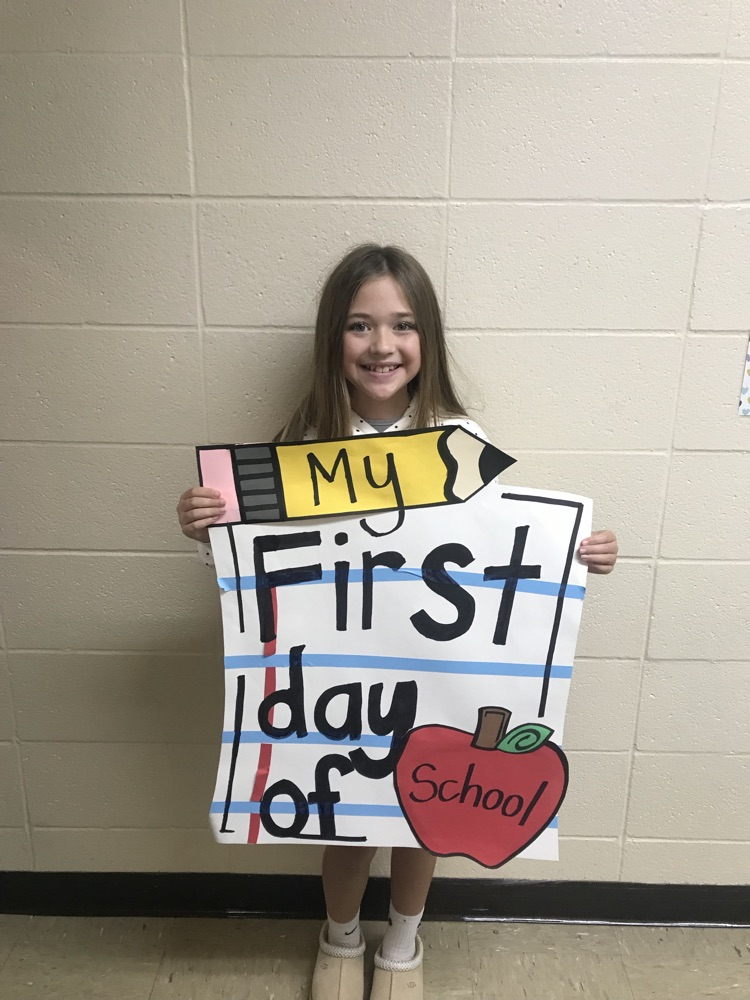 My
First
day
of
School